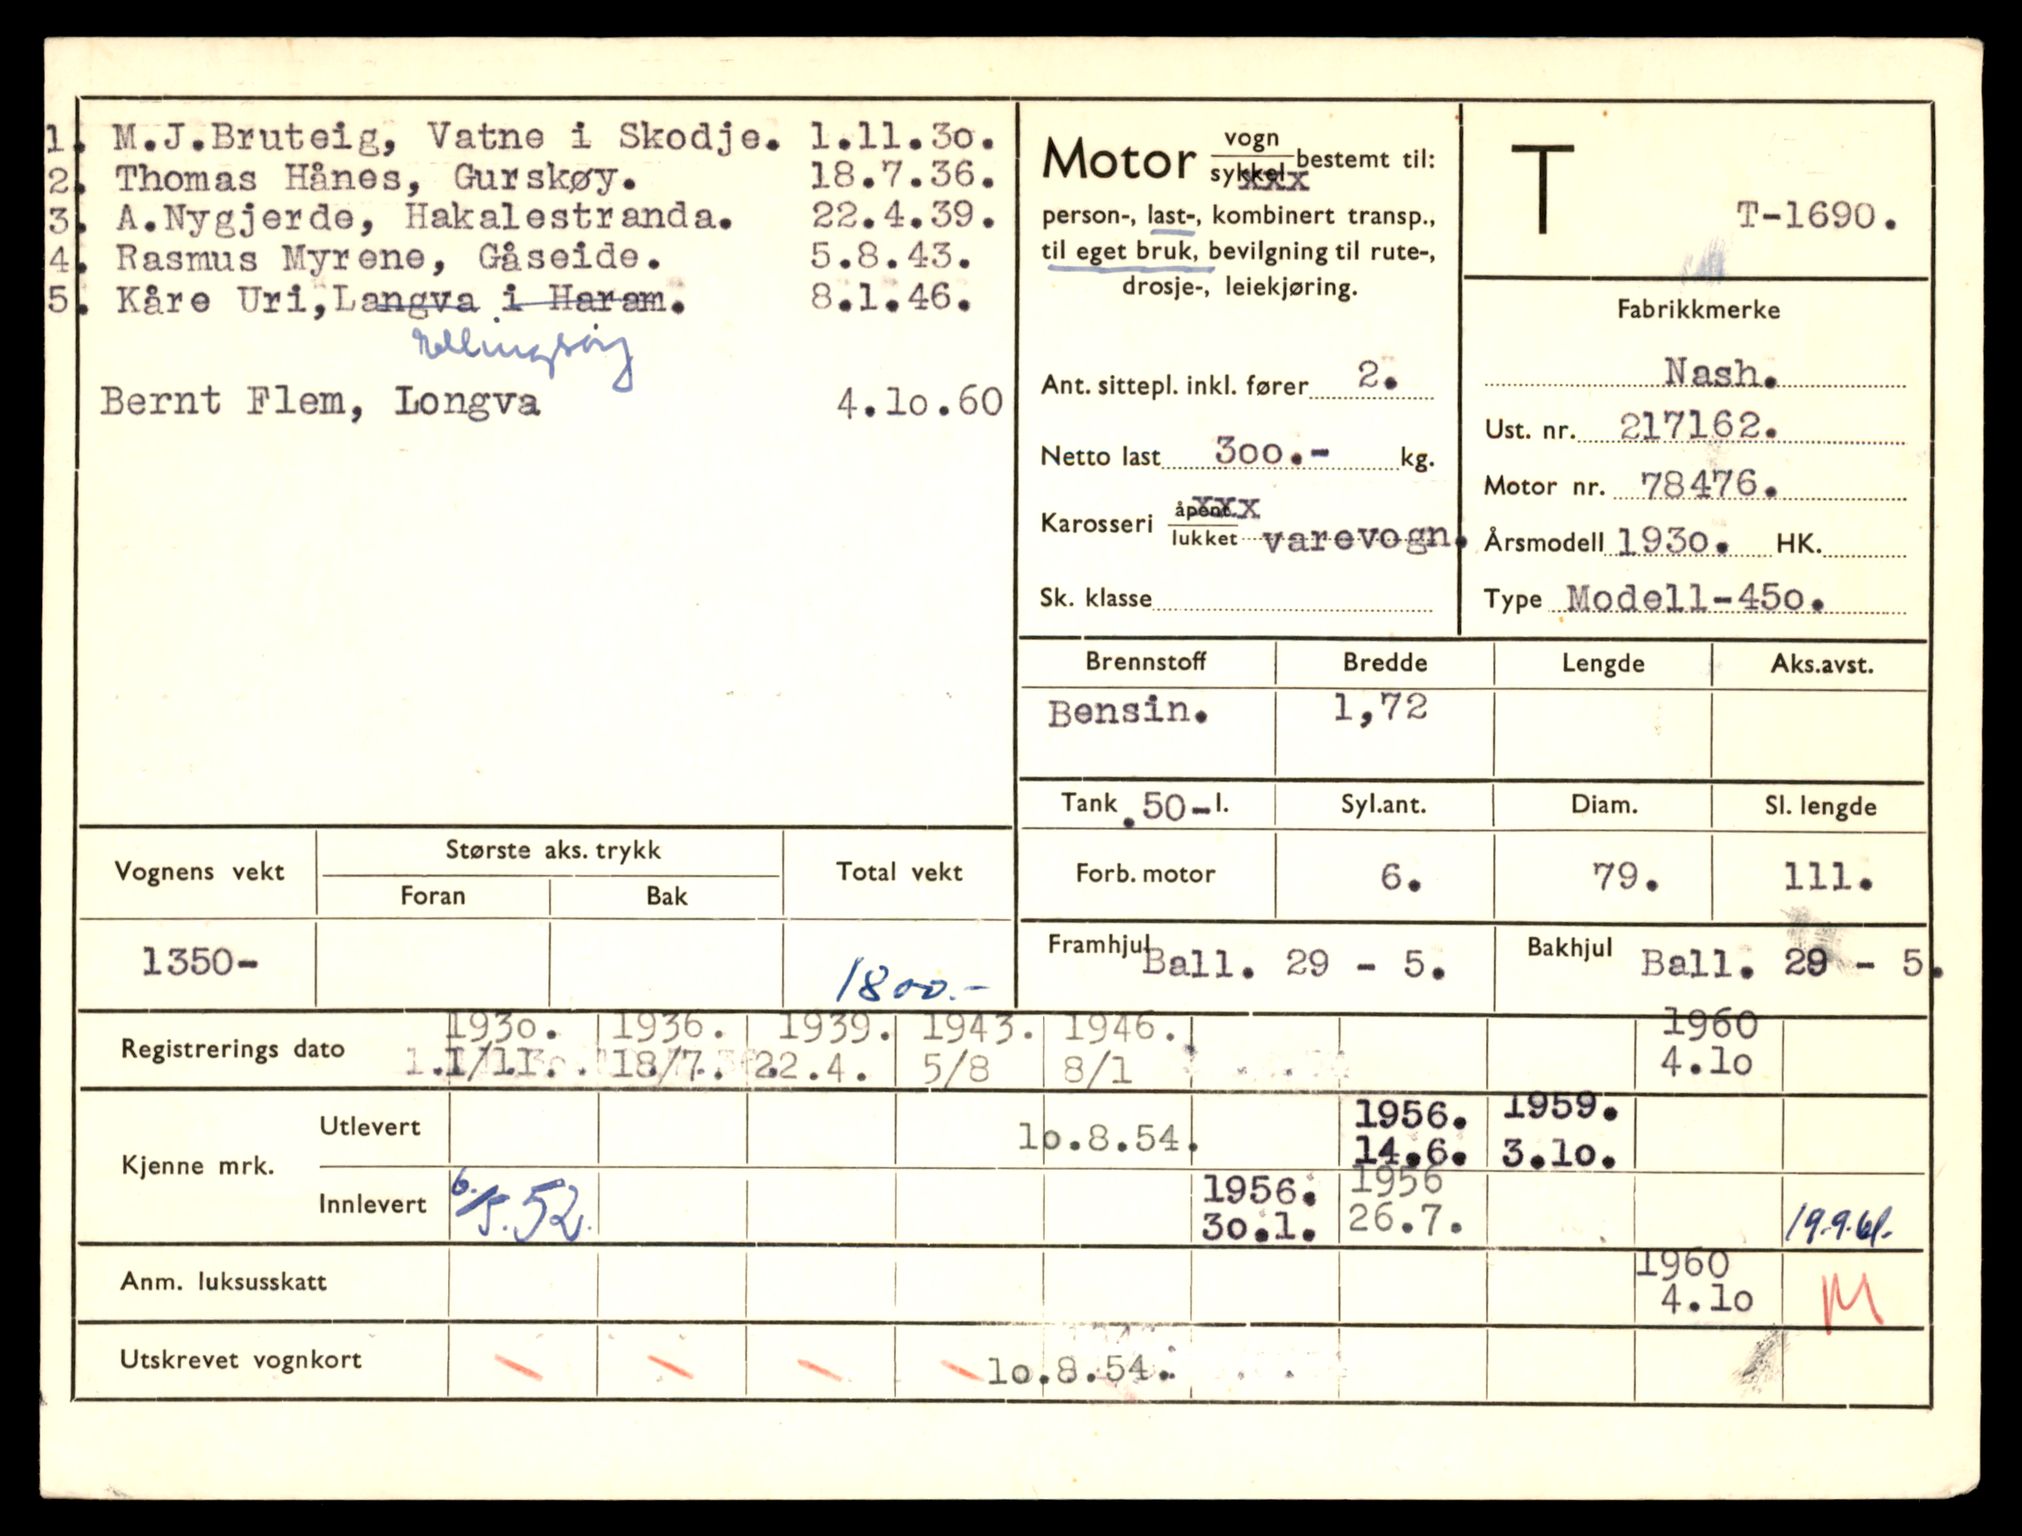 1. M.J.Bruteig, Vatne i Skodje. 1.11.3o.
2. Thomas Hånes, Gurskøy. 18.7.36.
3. A.Nygjerde, Hakalestranda. 22.4.39.
4. Rasmus Myrene, Gåseide. 5.8.43.
5. Kåre Uri, Langva i Haram. 8.1.46.
Ellingsøy
Bernt Flem, Longva 4.1o.60
Motor vogn
sykkel xxx bestemt til:
person-, last-, kombinert transp.,
til eget bruk, bevilgning til rute-,
drosje-, leiekjøring.
Ant. sittepl. inkl. fører 2.
Netto last 3oo.- kg.
Karosseri åpent xxx
lukket varevogn.
Sk. klasse
T
T-1690.
Fabrikkmerke
Nash.
Ust. nr. 217162.
Motor nr. 78476.
Årsmodell 193o. HK.
Type Modell-45o.
Brennstoff Bredde Lengde Aks.avst.
Bensin. 1,72
Tank .50-l. Syl.ant. Diam. Sl. lengde
Forb. motor 6. 79. 111.
Framhjul Ball. 29 - 5. Bakhjul Ball. 29 - 5.
Vognens vekt Største aks. trykk Total vekt
Foran Bak
1350- 1800.-
Registrerings dato
193o. 1936. 1939. 1943. 1946. 1960
1.1/11. 18/7. 22.4. 5/8 8/1 4.1o
Kjenne mrk.
Utlevert 1o.8.54. 1956. 1959.
14.6. 3.1o.
Innlevert 6./5.52. 1956. 1956 19.9.61.
3o.1. 26.7.
Anm. luksusskatt 1960
4.1o M
Utskrevet vognkort 1o.8.54.